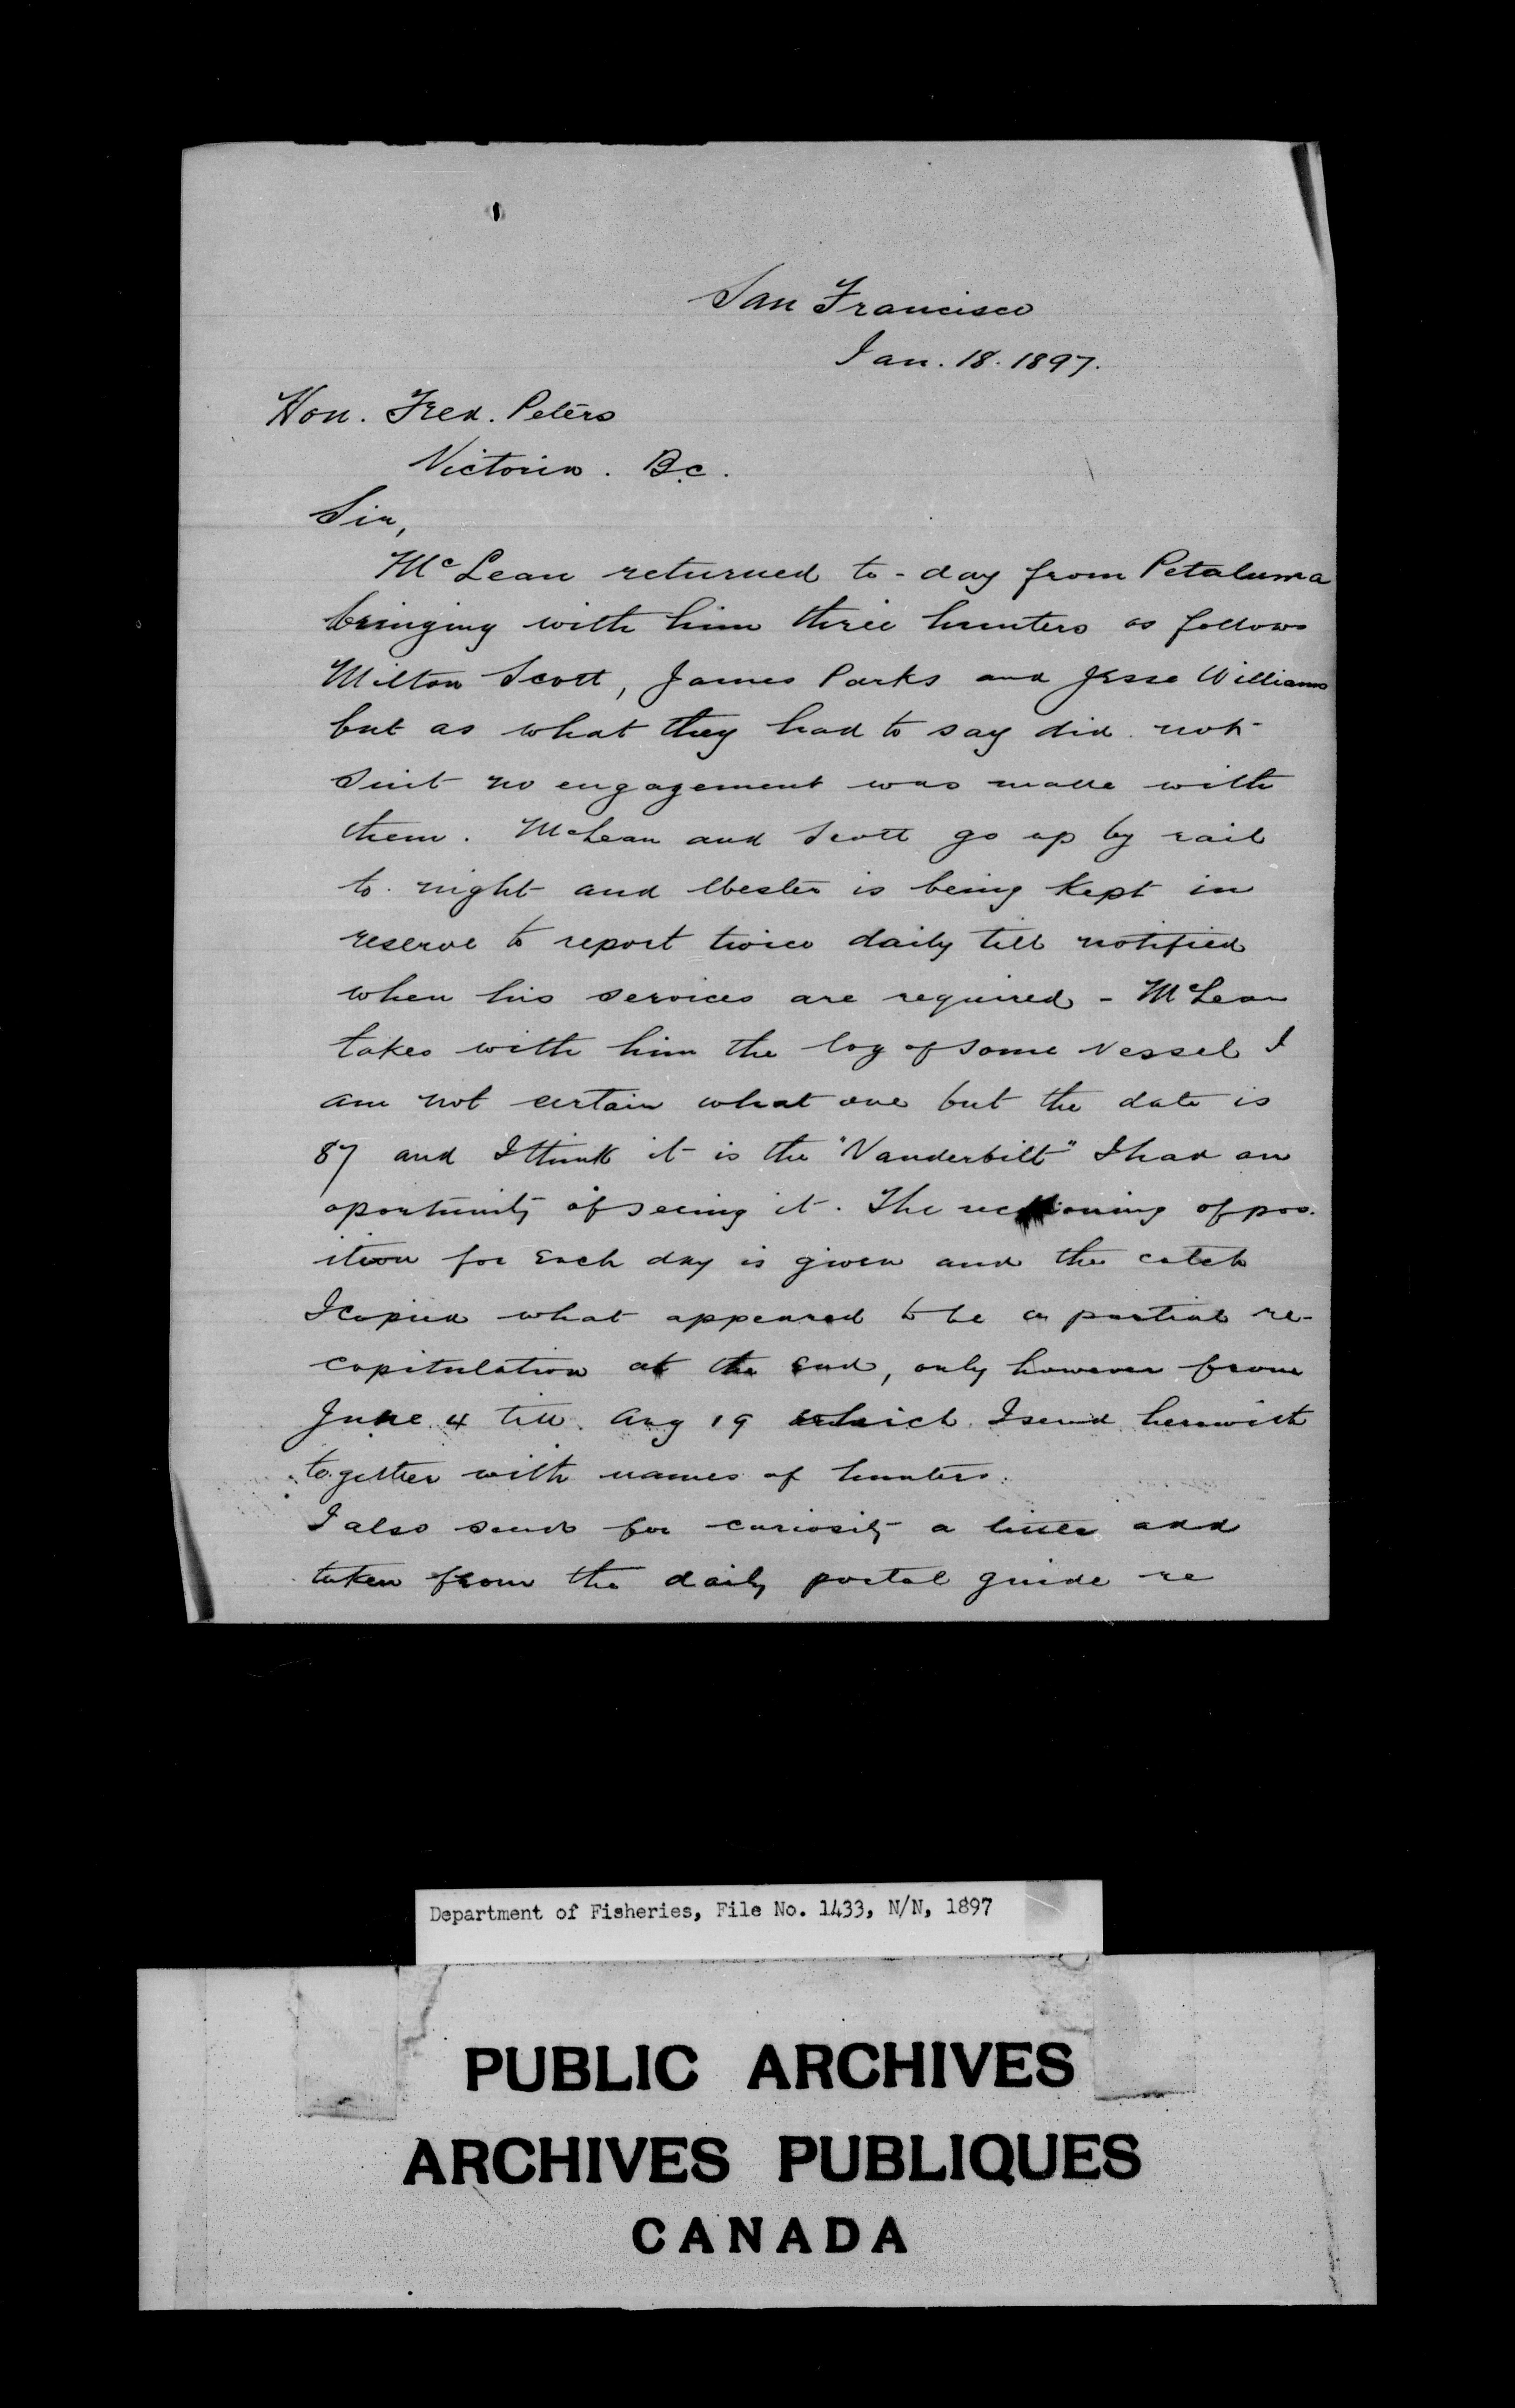 San Francisco
Jan. 18. 1897.
Hon. Fred. Peters
Victoria. B.C.
Sir,
McLean returned to-day from Petaluma
bringing with him three hunters as follows
Milton Scott, James Parks and Jesse Williams
but as what they had to say did not
suit no engagement was made with
them. McLean and Scott go up by rail
to. night and is being kept in
reserve to report twice daily till notified
when his services are required - McLean
takes with him the log of some vessel I
am not certain what one but the date is
87 and I think it is the "Vanderbilt" I had an
oportunity of seeing it. The reckoning of pos.
ition for each day is given and the catch
I copied what appeared to be a partial re-
capitulation at the end, only however from
June 4 till Aug 19 which I send herewith
together with names of hunters.
I also send for curiosity a little add
taken from the daily postal guide re
Department of Fisheries, File No. 1433, N/N, 1897
PUBLIC ARCHIVES
ARCHIVES PUBLIQUES
CANADA